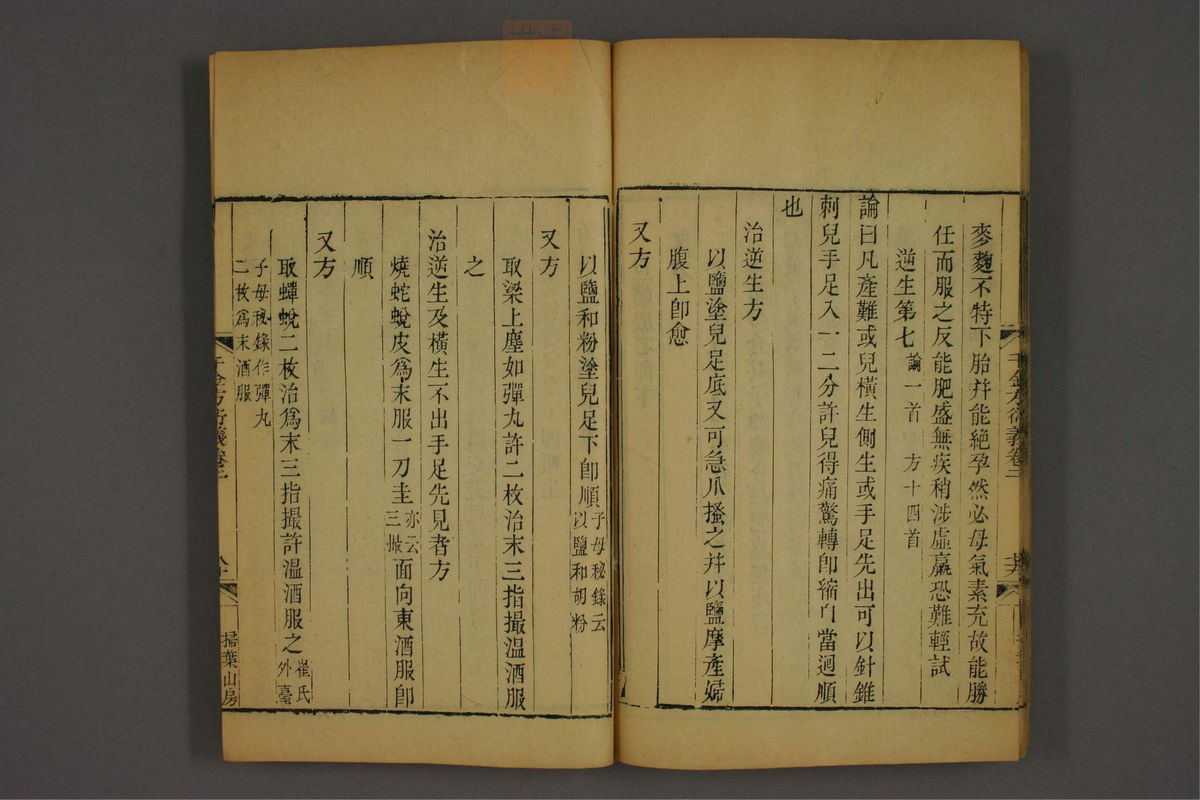 麥麴不特下胎幷能絕孕然必母氣素充故能勝
任而服之反能肥盛無疾稍涉虛羸恐難輕試
逆生第七 論一首 方十四首
論曰凡產難或兒橫生側生或手足先出可以針錐
刺兒手足入一二分許兒得痛驚轉卽縮自當迴順
也
治逆生方
以鹽塗兒足底又可急爪搔之幷以鹽摩產婦
腹上卽愈
又方
以鹽和粉塗兒足下卽順 子母秘錄云
以鹽和胡粉
又方
取梁上塵如彈丸許二枚治末三指撮溫酒服
之
治逆生及橫生不出手足先見者方
燒蛇蛻皮爲末服一刀圭 亦云
三撮 面向東酒服卽
順
又方
取蟬蛻二枚治爲末三指撮許溫酒服之 崔氏
外臺
子母秘錄作彈丸
二枚爲末酒服
千金方衍義卷二
掃葉山房